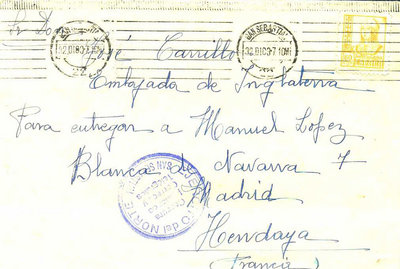 Sr Don José Carrillo
Embajada de Inglaterra
Para entregar a Manuel Lopez
Blanca de Navarra 7
Madrid
Hendaya
(Francia)
SAN SEBASTIAN
EJERCITO del NORTE